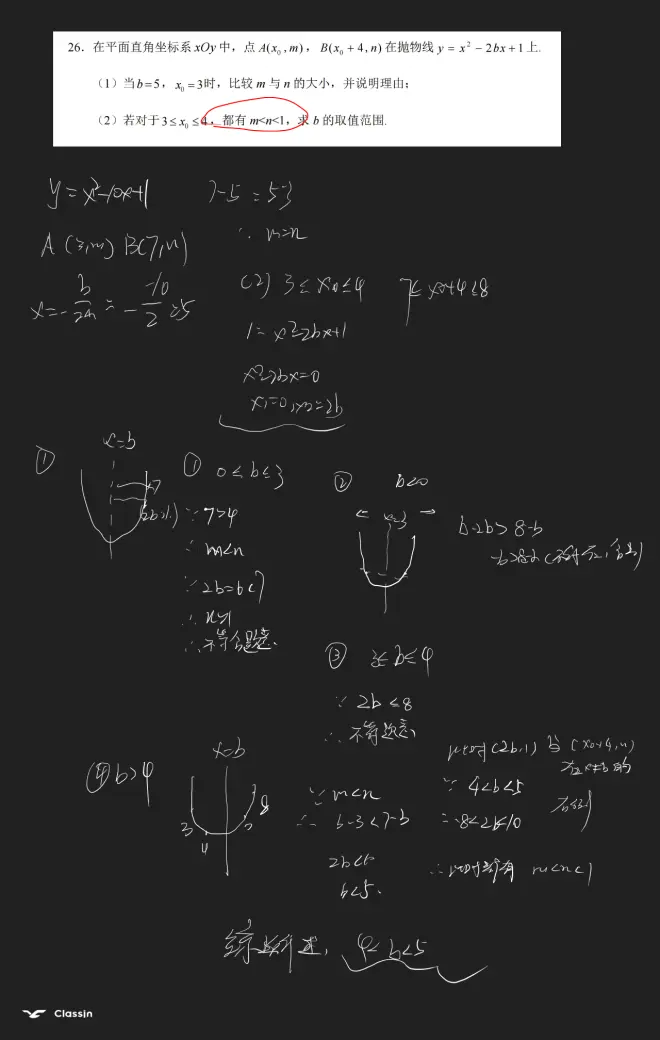 26. 在平面直角坐标系 xOy 中，点 A(x₀, m)，B(x₀ + 4, n) 在抛物线 y = x² − 2bx + 1 上.
（1）当 b=5，x₀ = 3时，比较 m 与 n 的大小，并说明理由；
（2）若对于 3 ≤ x₀ ≤ 4，都有 m<n<1，求 b 的取值范围.
y = x²-10x+1
7-5 = 5-3
A (3,m) B(7,n)
∴ m=n
x = -b/2a = - -10/2 = 5
(2) 3 ≤ x₀ ≤ 4
7 ≤ x₀+4 ≤ 8
1 = x²-2bx+1
x²-2bx=0
x₁=0, x₂=2b
x=b
①
① 0 ≤ b ≤ 3
∵ 7>4
∴ m<n
∵ 2b=6<7
∴ n>1
∴ 不符合题意.
② b<0
b-2b > 8-b
③ 3≤ b ≤ 4
∵ 2b ≤8
∴ 不符题意
④ b>4
x=b
3
4
8
∵ m<n
∴ b-3<7-b
b<5.
此时 (2b,1) 与 (x₀+4,n)
在x=b 的
右侧
∵ 4<b<5
∴ 8<2b<10
∴ 此时都有 m<n<1
综上所述, 4< b<5
ClassIn